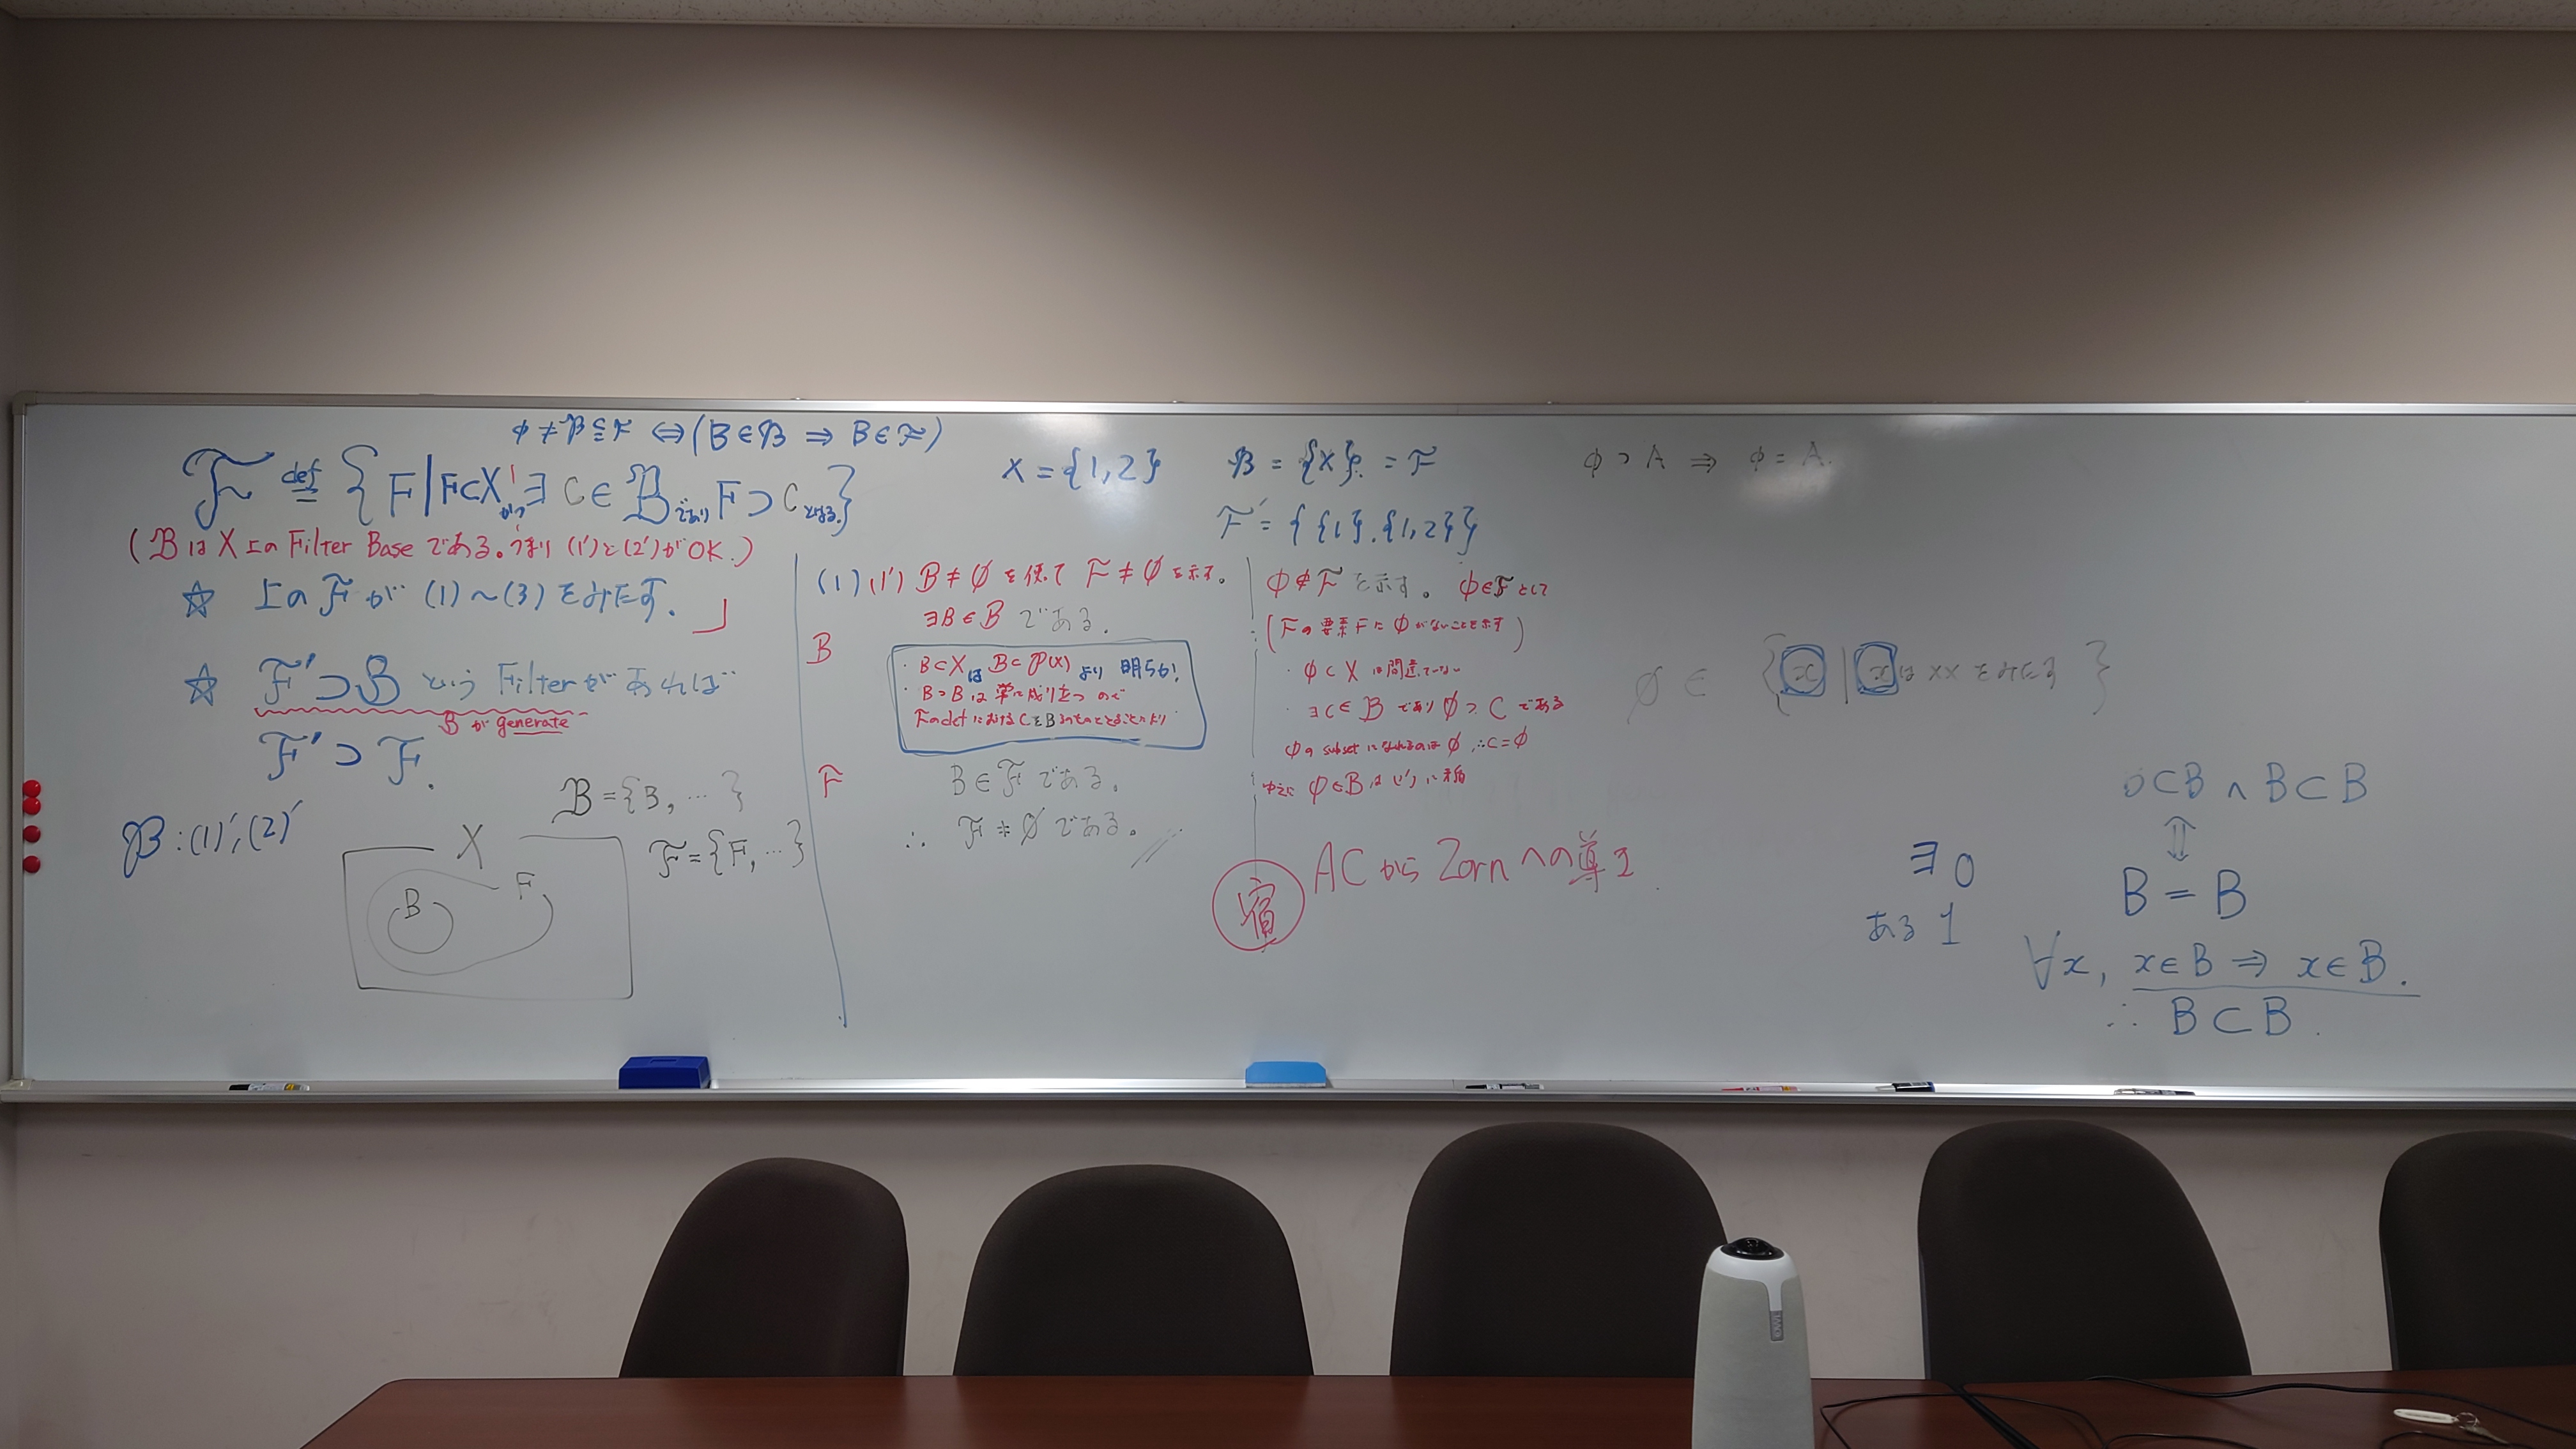 φ ≠ 𝓑 ⊆ 𝓕 ⇔ (B ∈ 𝓑 ⇒ B ∈ 𝓕)
𝓕 def= { F | F⊂X かつ ∃ C ∈ 𝓑 であり F ⊃ C となる. }
(𝓑 は X 上の Filter Base である。つまり (1')と(2')がOK.)
☆ 上の 𝓕 が (1)〜(3) をみたす. 」
☆ 𝓕' ⊃ 𝓑 という Filter があれば
𝓑 が generate
𝓕' ⊃ 𝓕.
𝓑 : (1)', (2)'
𝓑 = {B, … }
𝓕 = {F, … }
X
B
F
(1) (1') 𝓑 ≠ ∅ を使って 𝓕 ≠ ∅ を示す。
∃B ∈ 𝓑 である.
𝓑
・B ⊂ X は 𝓑 ⊂ 𝒫(X) より 明らか!
・B ⊃ B は 常に成り立つ ので
𝓕のdef における C を B そのものととることにより
𝓕
B ∈ 𝓕 である.
∴ 𝓕 ≠ ∅ である。
X = {1, 2}
𝓑 = {X}. = 𝓕
𝓕' = { {1}. {1, 2} }
φ ∉ 𝓕 を示す。 φ ∈ 𝓕 として
(𝓕の要素 F に φ がないことを示す)
・φ ⊂ X は間違っていない
・∃ C ∈ 𝓑 であり ∅ ⊃ C である
φの subset になれるのは ∅ ∴ C = φ
ゆえに φ ∈ 𝓑 は (1') に矛盾
宿 AC から Zorn への導
φ ⊃ A ⇒ φ = A.
∅ ∈ { x | x は ×× をみたす }
∃ 0
ある 1
⊂ B ∧ B ⊂ B
⇕
B = B
∀x, x ∈ B ⇒ x ∈ B.
∴ B ⊂ B.